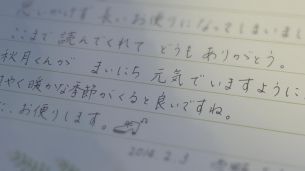 思いがけず 長いお便りになってしまいまし
ここまで 読んでくれて どうもありがとう。
秋月くんが まいにち 元気でいますように
はやく暖かな季節がくると良いですね。
お便りします。
2016. 2. 3